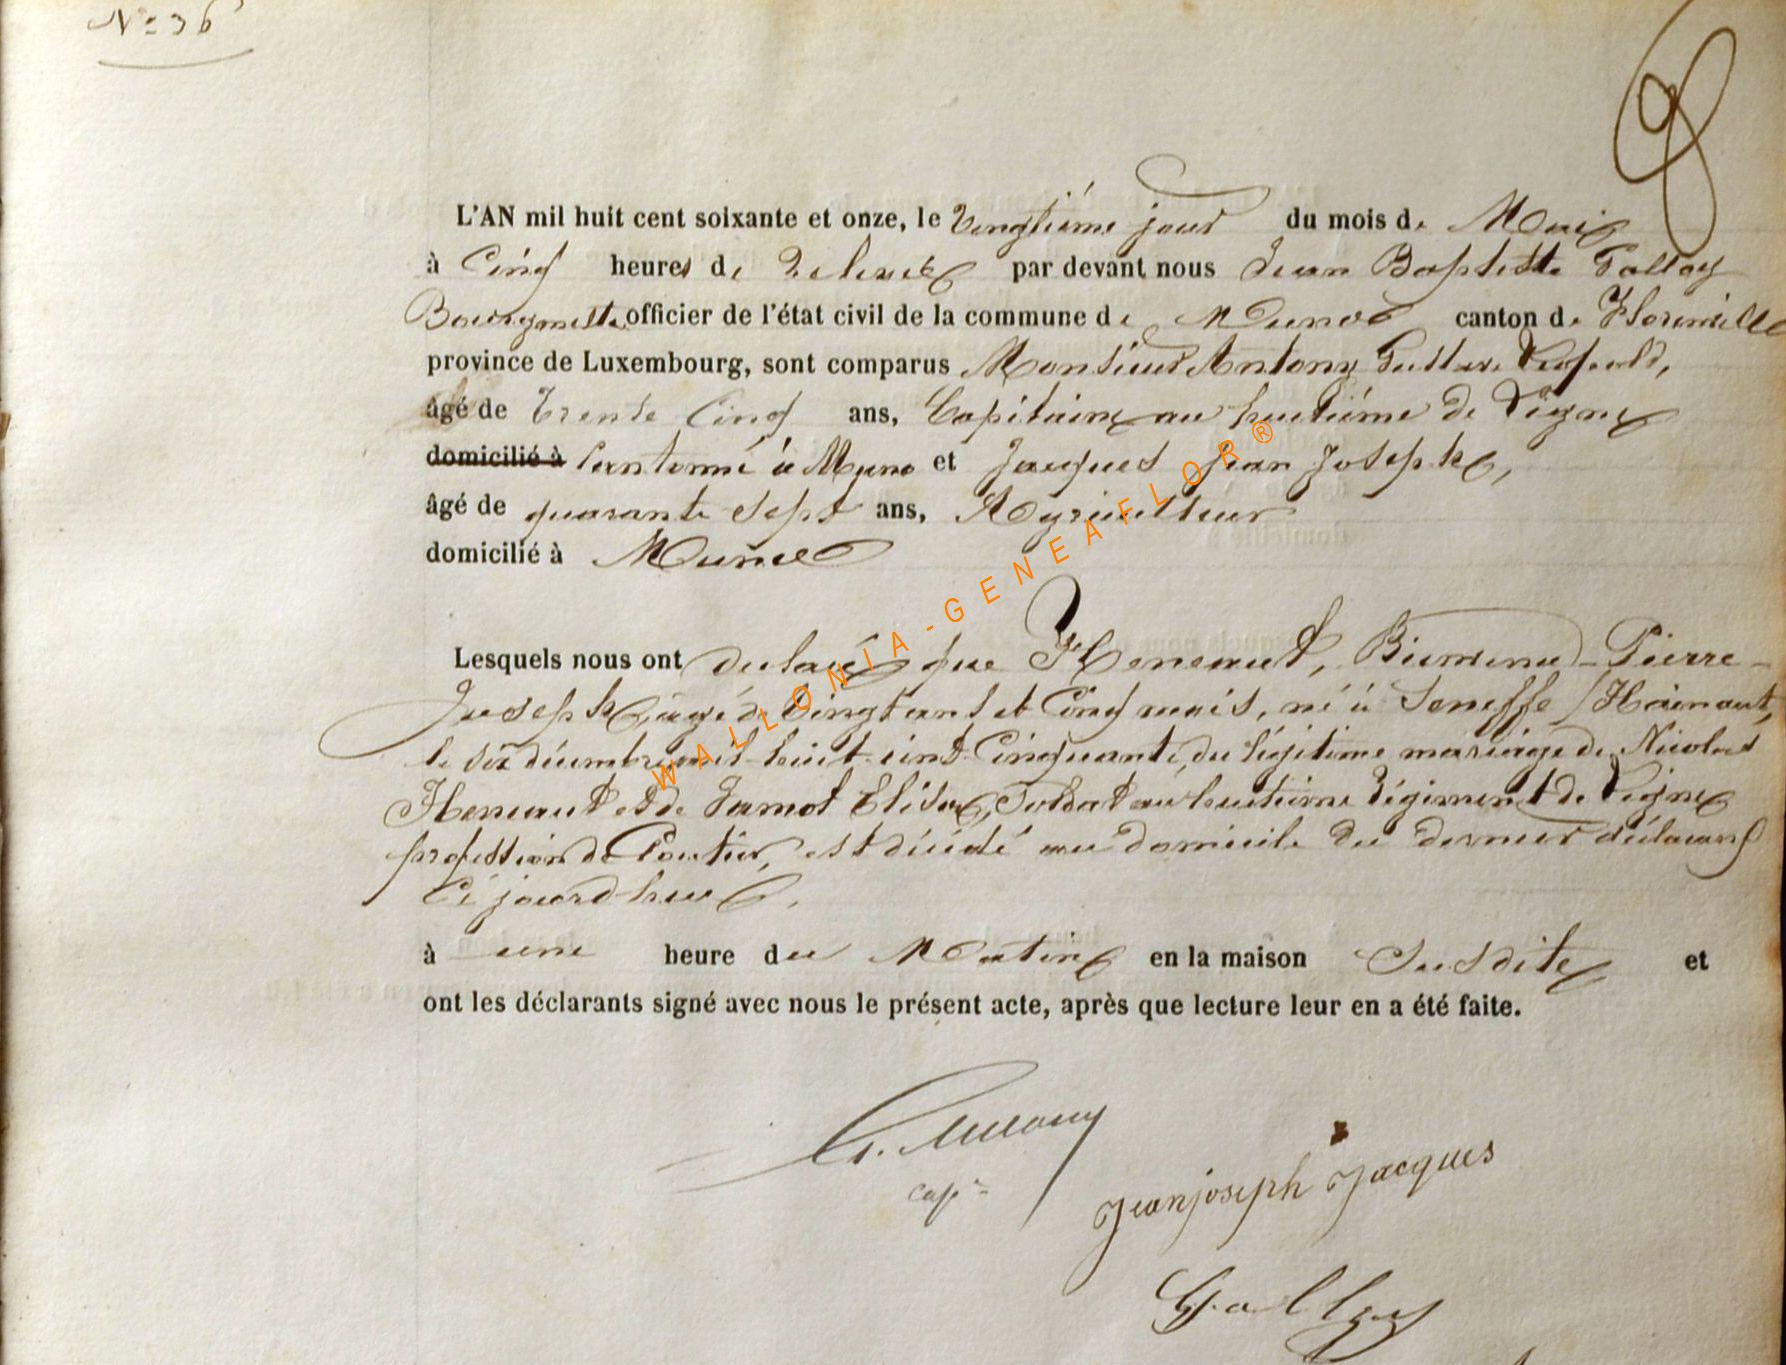 N° 36
L'AN mil huit cent soixante et onze, le vingtième jour du mois de Mai
à Cinq heures de relevée par devant nous Jean Baptiste Galloy
Bourgmestre officier de l'état civil de la commune de Muno canton de Florenville
province de Luxembourg, sont comparus Monsieur Antony Gustave Léopold,
âgé de Trente Cinq ans, Capitaine au huitième de Ligne
domicilié à Cantonné à Muno et Jacques Jean Joseph,
âgé de quarante sept ans, Agriculteur
domicilié à Muno
Lesquels nous ont déclaré que Heneaut, Bienvenu-Pierre-
Joseph, âgé de vingt ans et Cinq mois, né à Seneffe /Hainaut,
le six décembre mil huit cent Cinquante, du légitime mariage de Nicolas
Heneaut et de Jamot Elise, Soldat au huitième Régiment de Ligne
profession de, est décédé au domicile du dernier déclarant
Cejourd'hui,
à une heure du Matin en la maison Susdite et
ont les déclarants signé avec nous le présent acte, après que lecture leur en a été faite.
G. Antony
cap
Jeanjoseph Jacques
Galloy
WALLONIA-GENEAFLOR®